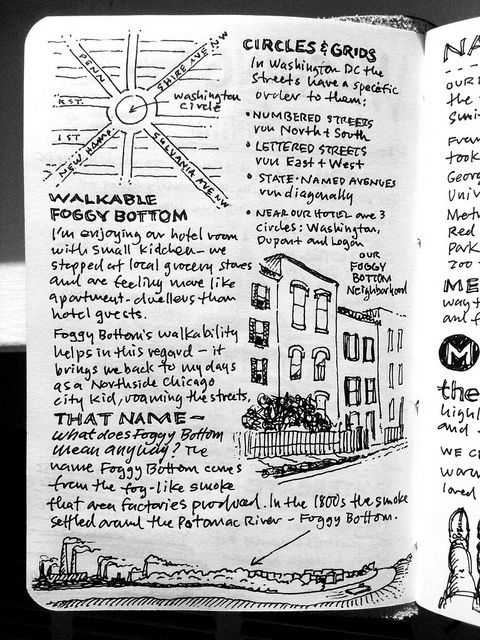 PENN
SHIRE AVE NW
K ST.
I ST.
NEW HAMP
SYLVANIA AVE NW
Washington
Circle
CIRCLES & GRIDS
In Washington DC the
streets have a specific
order to them:
• NUMBERED STREETS
run North & South
• LETTERED STREETS
run East & West
• STATE-NAMED AVENUES
run diagonally
• NEAR OUR HOTEL are 3
circles: Washington,
Dupont and Logan
OUR
FOGGY
BOTTOM
Neighborhood
WALKABLE
FOGGY BOTTOM
I'm enjoying our hotel room
with small kidchen - we
stopped at local grocery stores
and are feeling more like
apartment-dwellers than
hotel guests.
Foggy Bottom's walkability
helps in this regard - it
brings me back to my days
as a Northside Chicago
city kid, roaming the streets.
THAT NAME -
what does Foggy Bottom
mean anyway? The
name Foggy Bottom comes
from the fog-like smoke
that area factories produced. In the 1800s the smoke
settled around the Potomac River - Foggy Bottom.
NA
OUR
the
Geor
Univ
Metr
Red
Park
Zoo
ME
way t
and f
M
the
highl
and
WE C
warm
loved